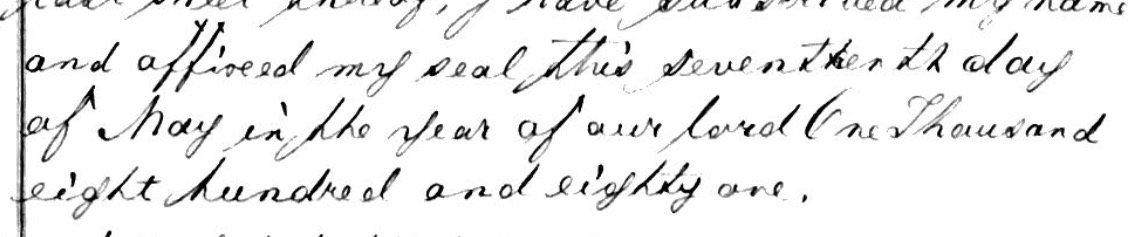 last sheet thereof, I have subscribed my name
and affixed my seal this seventeenth day
of May in the year of our lord One Thousand
eight hundred and eighty one.